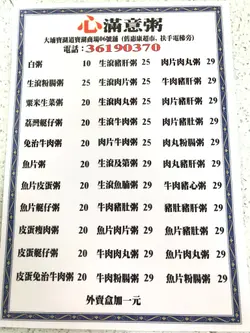 心滿意粥
大埔寶湖道寶湖商場06號舖 (舊惠康超市, 扶手電梯旁)
電話：36190370
白粥 10 生滾豬肝粥 25 肉片肉丸粥 29
生滾粉腸粥 25 生滾肉丸粥 25 牛肉豬肝粥 29
粟米生菜粥 20 生滾肉片粥 25 肉片豬肝粥 29
荔灣艇仔粥 20 生滾牛肉粥 25 肉片粉腸粥 29
免治牛肉粥 20 肉片牛肉粥 25 肉丸粉腸粥 29
魚片粥 20 生滾及第粥 29 肉丸豬肝粥 29
魚片皮蛋粥 20 生滾魚腩粥 29 牛肉豬心粥 29
魚片艇仔粥 20 牛肉豬肚粥 29 豬肚豬肝粥 29
皮蛋瘦肉粥 20 魚片肉片粥 29 魚片豬肚粥 29
皮蛋艇仔粥 20 牛肉肉丸粥 29 魚片肉丸粥 29
皮蛋免治牛肉粥 20 牛肉粉腸粥 29 魚片粉腸粥 29
外賣盒加一元